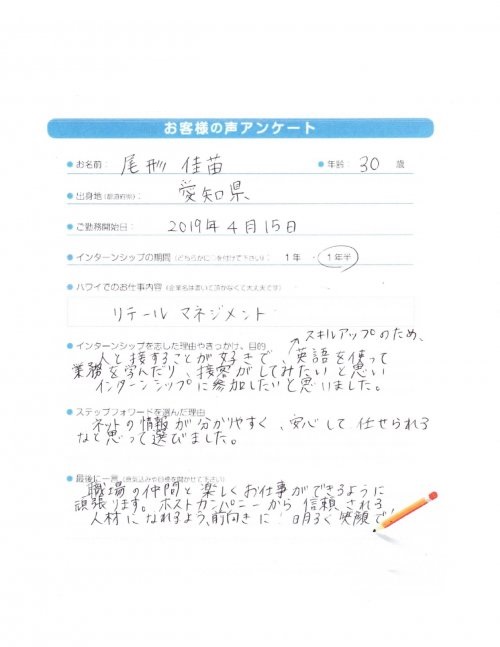 お客様の声アンケート
お名前： 尾形 佳苗 年齢： 30 歳
出身地（都道府県）： 愛知県
ご勤務開始日： 2019年4月15日
インターンシップの期間（どちらかに○を付けて下さい）： 1年 ・ 1年半
ハワイでのお仕事内容（企業名は書いて頂かなくて大丈夫です）
リテール マネジメント
インターンシップを志した理由やきっかけ、目的
スキルアップのため、
人と接することが好きで、英語を使って
業務を学んだり、接客がしてみたいと思い
インターンシップに参加したいと思いました。
ステップフォワードを選んだ理由
ネットの情報が分かりやすく、安心して任せられる
なと思って選びました。
最後に一言（意気込みや目標を聞かせて下さい）
職場の仲間と楽しくお仕事ができるように
頑張ります。ホストカンパニーから信頼される
人材になれるよう、前向きに！明るく笑顔で！